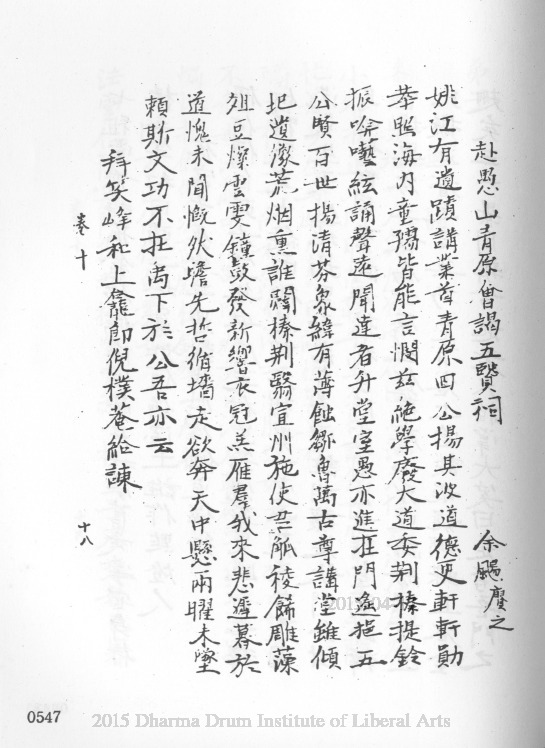 赴愚山青原會謁五賢祠　余颺賡之
姚江有遺蹟講業首青原四公揚其波道德史軒軒勛
華照海內童孺皆能言憫茲絕學廢大道委荆榛提鈴
振唫囈絃誦聲遠聞達者升堂室愚亦進在門遙挹五
公賢百世揚清芬象緯有薄蝕鄒魯萬古尊講堂雖傾
圯遺像荒烟熏誰闢榛荆翳宜州施使君觚稜飾雕藻
俎豆燦雲雯鐘鼓發新響衣冠羔雁羣我來悲遲暮於
道愧未聞慨然瞻先哲循墻走欲奔天中懸兩曜未墜
賴斯文功不在禹下於公吾亦云
拜笑峰和上龕即倪樸菴給諫
卷十　十八
0547
2015 Dharma Drum Institute of Liberal Arts